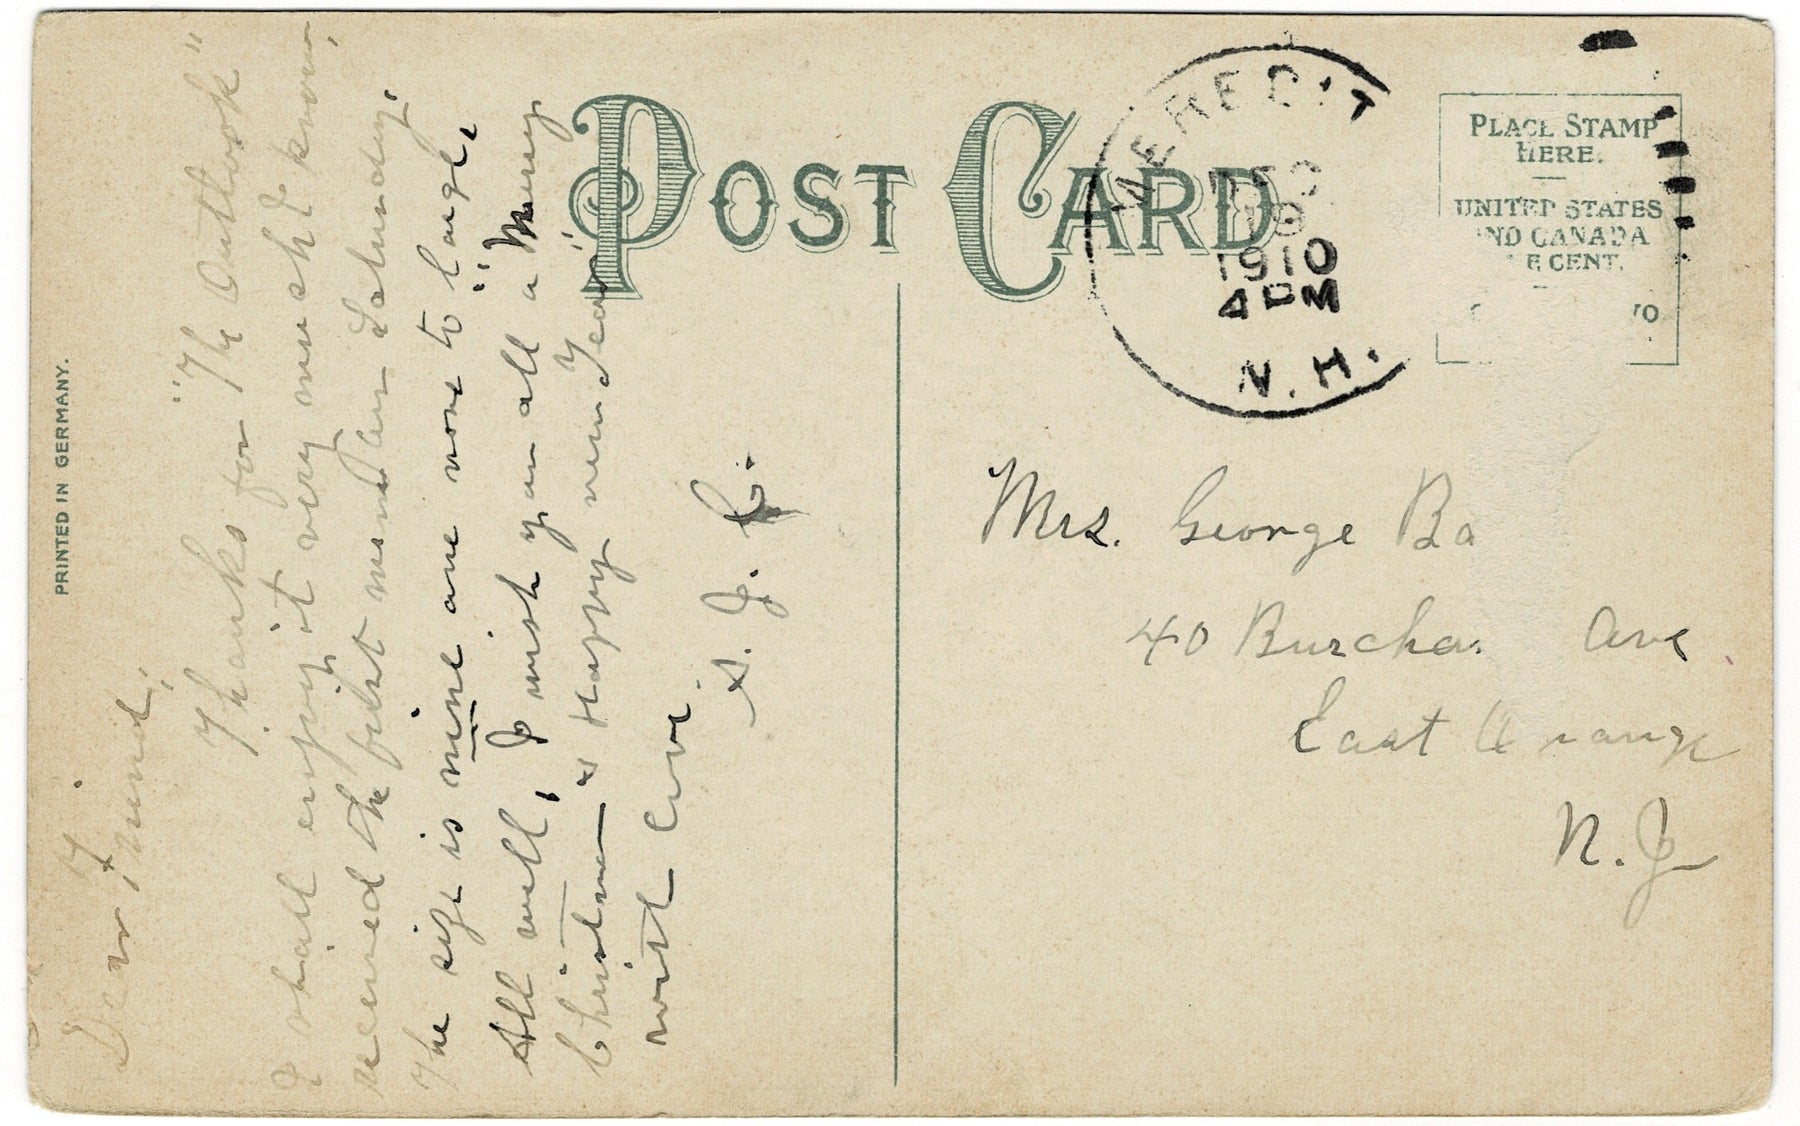 POST CARD
PRINTED IN GERMANY.
MEREDIT
DEC
19
1910
4 PM
N.H.
PLACE STAMP
HERE.
UNITED STATES
AND CANADA
E CENT.
Dear Friend,
Thanks for "The Outlook"
I shall enjoy it very much I know,
received the first number Saturday.
The size is mine one not to large,
All well, I wish you all a "Merry
Christmas & Happy new Year"
with love
S. J. C.
Mrs. George Ba
40 Burcha Ave
East Orange
N. J.